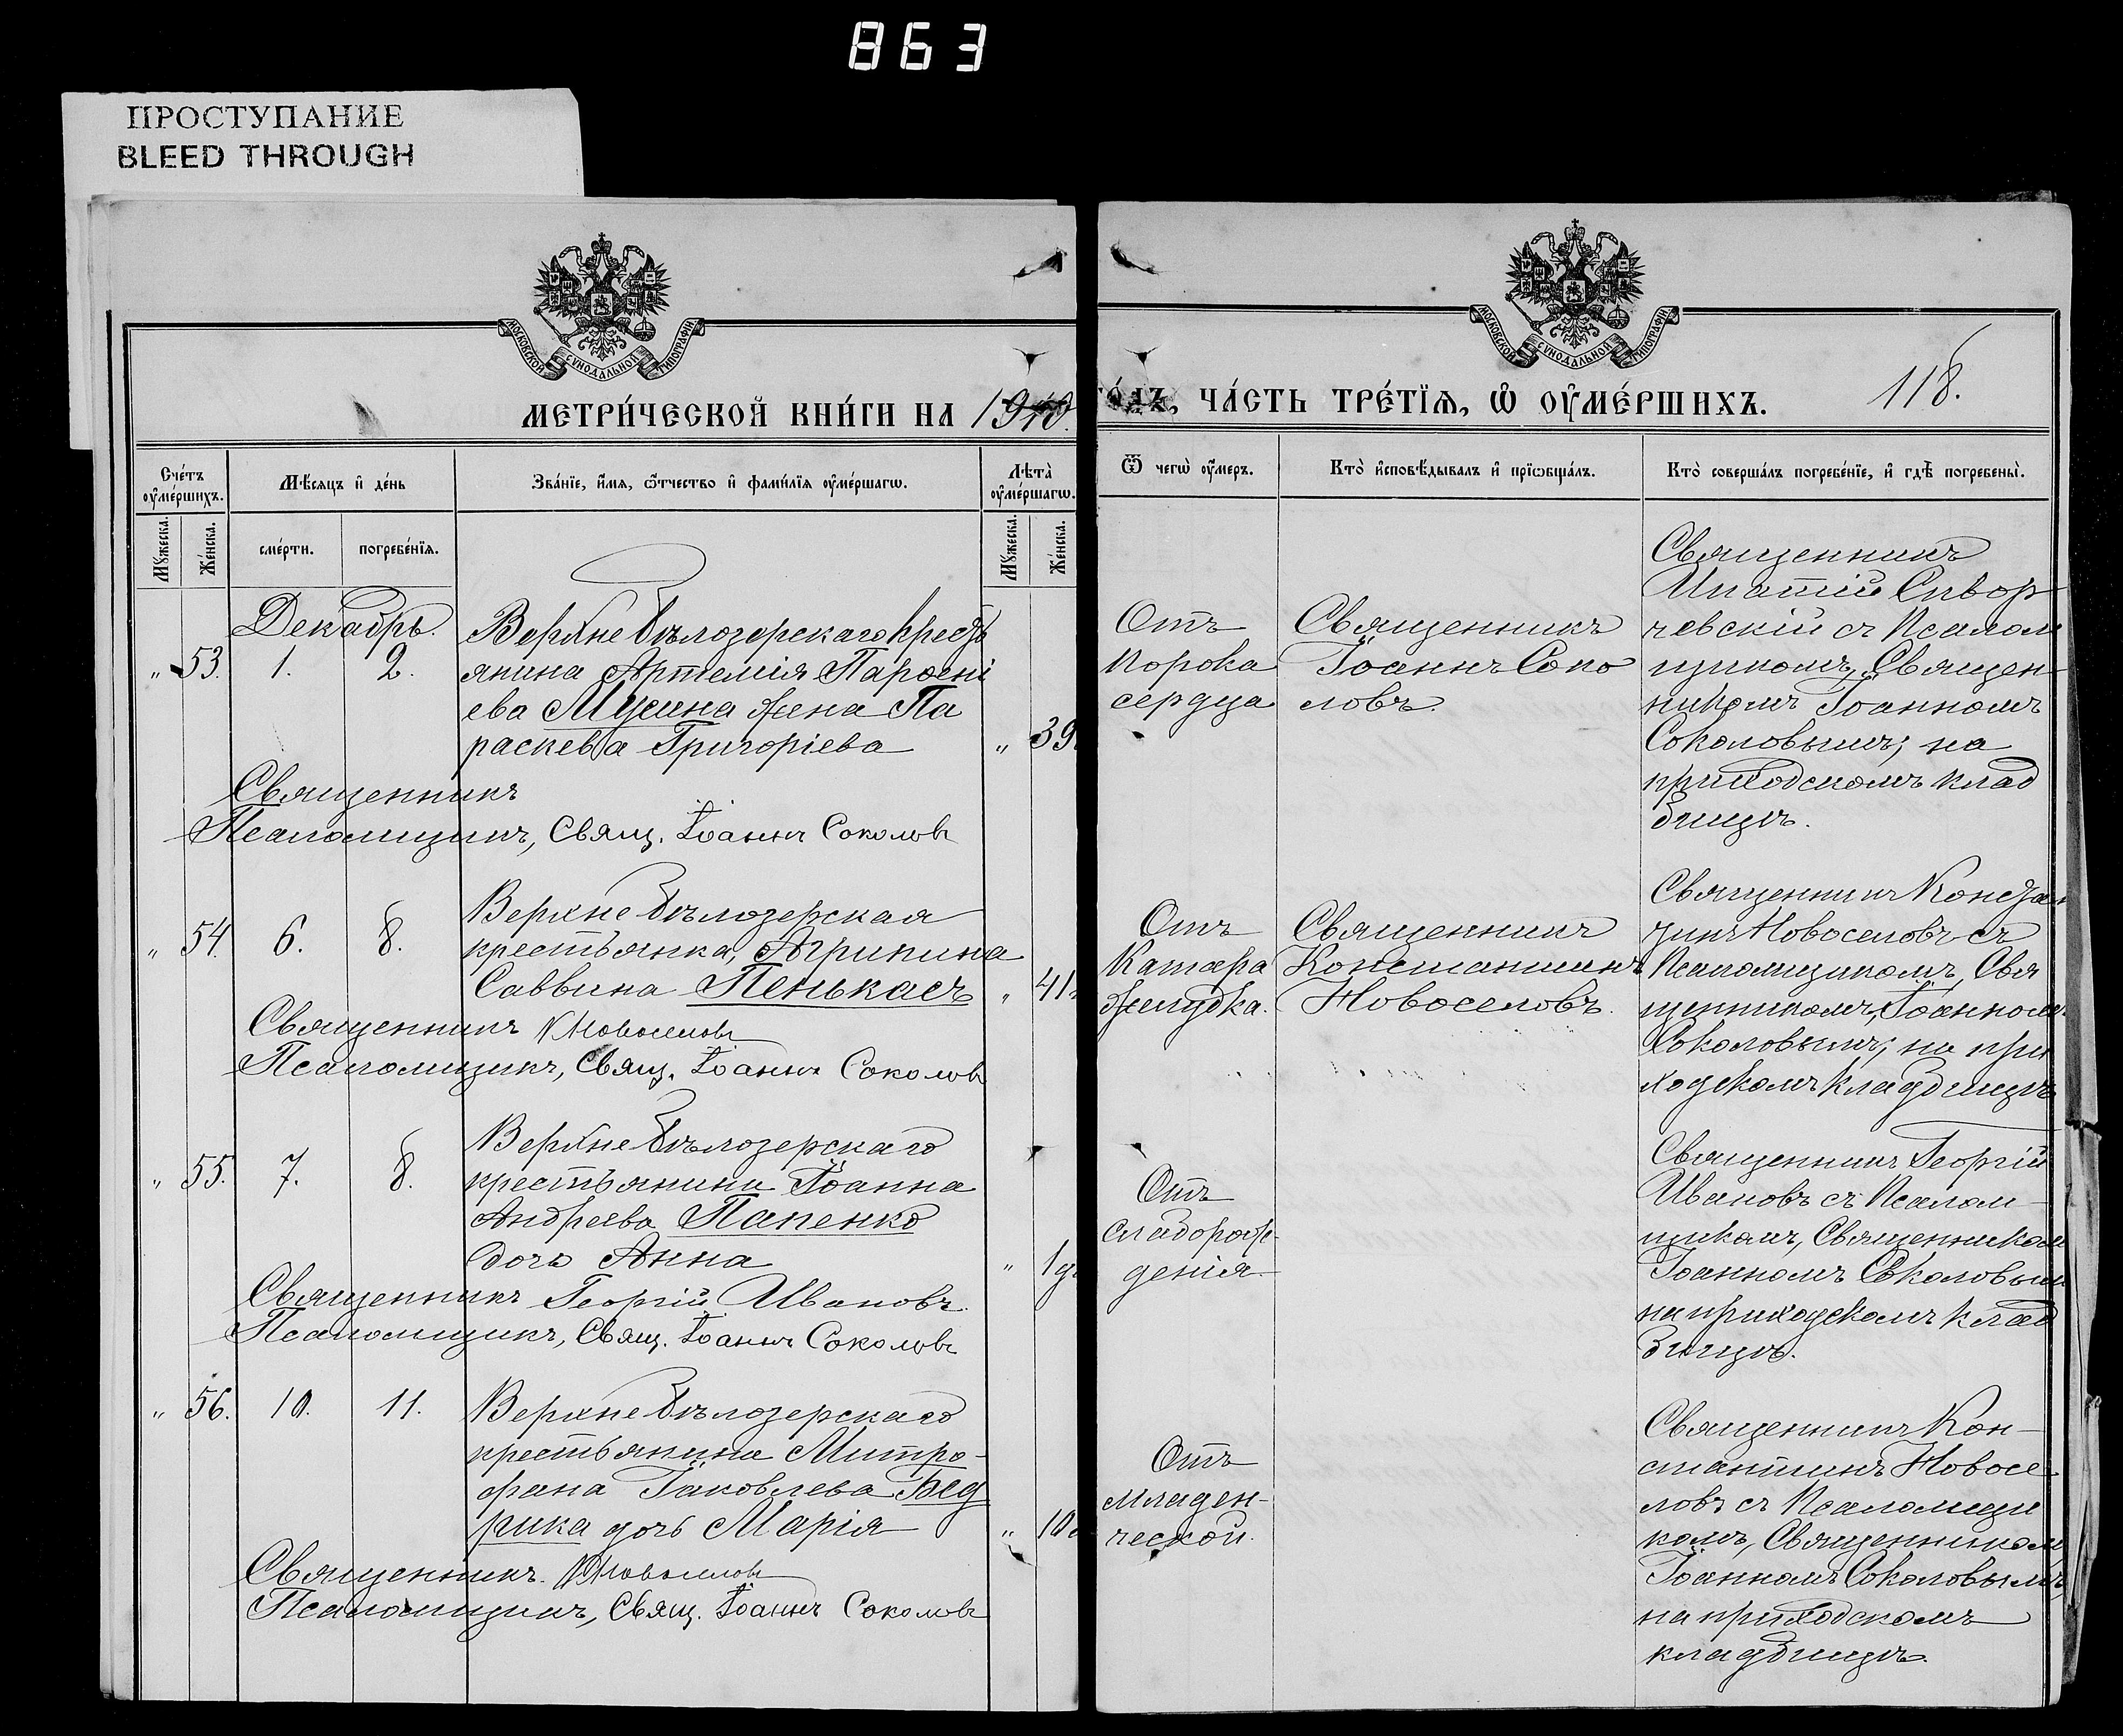 863
ПРОСТУПАНИЕ
BLEED THROUGH
МОСКОВСКОЙ СѴНОДАЛЬНОЙ ТИПОГРАФІИ
МОСКОВСКОЙ СѴНОДАЛЬНОЙ ТИПОГРАФІИ
МЕТРИ́ЧЕСКОЙ КНИ́ГИ НА 1910
ГО́ДЪ, ЧА́СТЬ ТРЕ́ТЇѦ, Ѡ҆ ОУ҆МЕ́РШИХЪ.
118.
Сче́тъ оу҆ме́ршихъ.
Мꙋжеска.
Же́нска.
Мѣ́сѧцъ и҆ де́нь
сме́рти.
погребе́нїѧ.
Зва́нїе, и҆́мѧ, ѻ҆́тчество и҆ фами́лїѧ оу҆ме́ршагѡ.
Лѣта̀ оу҆ме́ршагѡ.
Мꙋжеска.
Же́нска.
Ѿ чегѡ̀ оу҆́меръ.
Кто̀ и҆сповѣ́дывалъ и҆ прїѡбща́лъ.
Кто̀ соверша́лъ погребе́нїе, и҆ гдѣ̀ погребены̀.
Декабрь.
" 53. 1. 2.
Верхне Бѣлозерскаго крестъ
янина Артемія Парѳені
ева Мусина жена Па
раскева Григоріева
" 39.
Отъ
порока
сердца
Священникъ
Іоаннъ Соко
ловъ.
Священникъ
Ипатій Сквор
чевскій съ Псалом
щикомъ, Священ
никомъ Іоанномъ
Соколовымъ; на
приходскомъ клад
бищѣ.
Священникъ
Псаломщикъ, Свящ. Іоаннъ Соколовъ
" 54. 6. 8.
Верхне Бѣлозерская
крестьянка, Агрипина
Саввина Пенькасъ
" 41.
Отъ
Катара
желудка.
Священникъ
Константинъ
Новоселовъ.
Священникъ Констан
тинъ Новоселовъ съ
Псаломщикомъ, Свя
щенникомъ, Іоанномъ
Соколовымъ; на при
ходскомъ кладбищѣ
Священникъ К Новоселовъ
Псаломщикъ, Свящ. Іоаннъ Соколовъ
" 55. 7. 8.
Верхне Бѣлозерскаго
крестьянина Іоанна
Андреева Папенко
дочь Анна
" 1 д.
Отъ
слаборож-
денія.
Священникъ Георгій
Ивановъ съ Псалом-
щикомъ, Священникомъ
Іоанномъ Соколовымъ
на приходскомъ клад
бищѣ.
Священникъ Георгій Ивановъ.
Псаломщикъ, Свящ. Іоаннъ Соколовъ
" 56. 10. 11.
Верхне Бѣлозерскаго
крестьянина Митро-
фана Іаковлева Бед
рика дочь Марія
" 10
Отъ
младен-
ческой.
Священникъ Кон-
стантинъ Новосе
ловъ съ Псаломщи
комъ, Священникомъ
Іоанномъ Соколовымъ,
на приходскомъ
кладбищѣ.
Священникъ. К Новоселовъ
Псаломщикъ, Свящ. Іоаннъ Соколовъ